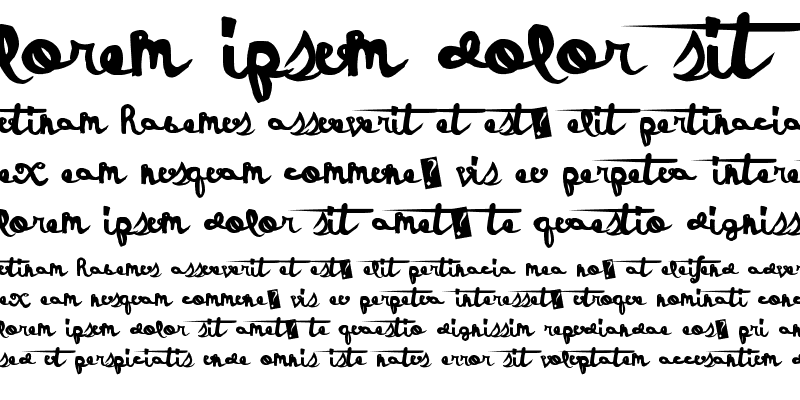 lorem ipsum dolor sit
utinam Habemus assueverit et est? elit pertinacia
ex eam nusquam commune? vis eu perpetua intere
lorem ipsum dolor sit amet? te quaestio digniss
utinam Habemus assueverit et est? elit pertinacia mea no? at eleifend adver
ex eam nusquam commune? vis eu perpetua interesset? utroque nominati conc
lorem ipsum dolor sit amet? te quaestio dignissim repudiandae eos? pri an
sed ut perspiciatis unde omnis iste natus error sit voluptatem accusantium d